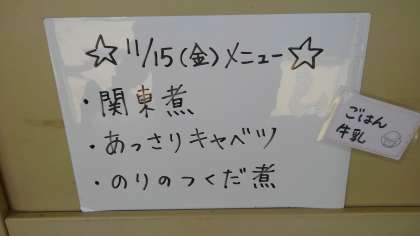 ☆11/15(金)メニュー☆
・関東煮
・あっさりキャベツ
・のりのつくだ煮
ごはん
牛乳